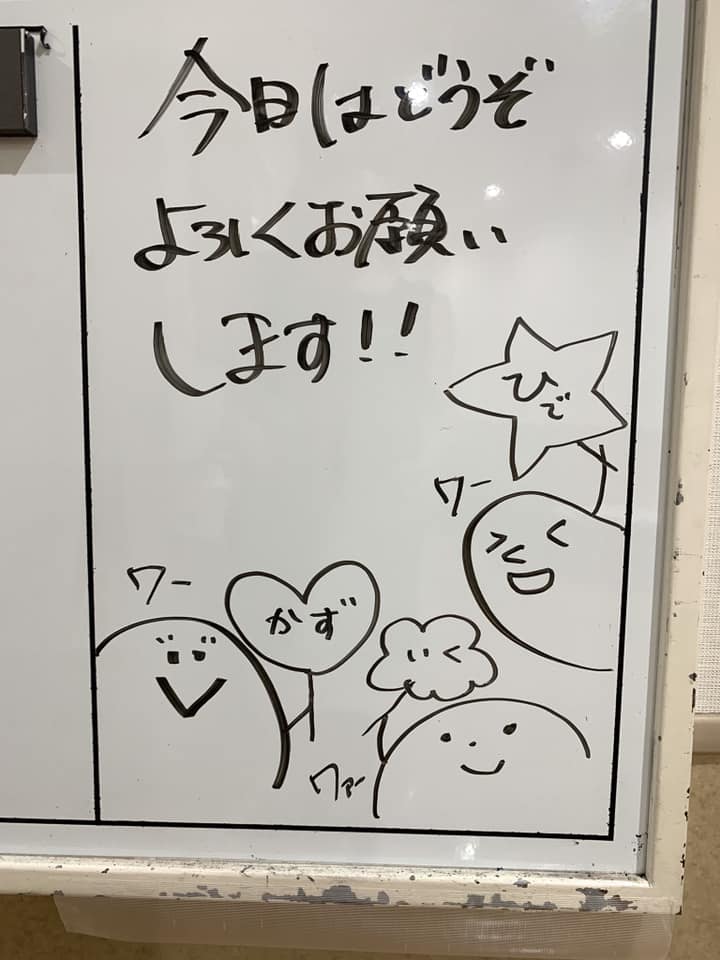 今日はどうぞ
よろしくお願い
します!!
ひで
ワー
ワー
かず
いく
ワァー